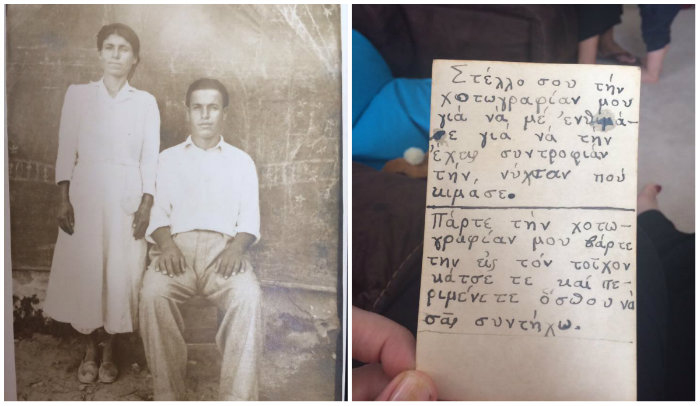 Στέλλο σου τήν
χοτωγραφίαν μου
γιά νά μέ ἐνθυμά-
σε γιά νά τήν
ἔχης συντροφιάν
τήν νύχταν πού
κιμάσε.
Πάρτε τήν χοτω-
γραφίαν μου βάρτε
την εἰς τόν τοῖχον
κάτσε τε καί πε-
ριμένετε ὅσπου νά
σᾶς συντήχω.